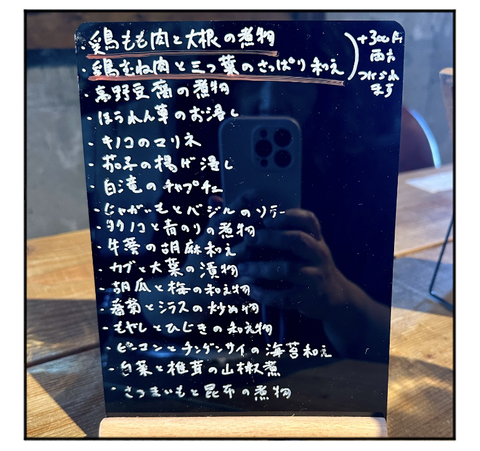 ・鶏もも肉と大根の煮物
・鶏むね肉と三つ葉のさっぱり和え
+300円
両方
つけられ
ます
・高野豆腐の煮物
・ほうれん草のお浸し
・キノコのマリネ
・茄子の揚げ浸し
・白滝のチャプチェ
・じゃがいもとバジルのソテー
・タケノコと青のりの煮物
・牛蒡の胡麻和え
・カブと大葉の漬物
・胡瓜と梅の和え物
・蕃菊とシラスの炒め物
・もやしとひじきの和え物
・ピーマンとチンゲンサイの海苔和え
・白菜と椎茸の山椒煮
・さつまいもと昆布の煮物